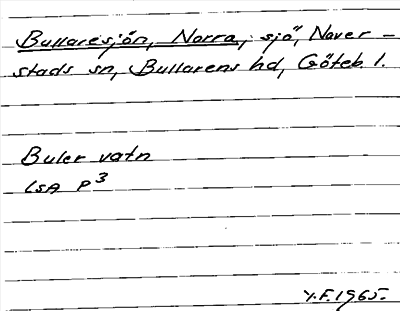 Bullaresjön, Norra, sjö, Naver-
stads sn, Bullarens hd, Göteb. l.
Buler vatn
LSA P³
Y.F. 1965.